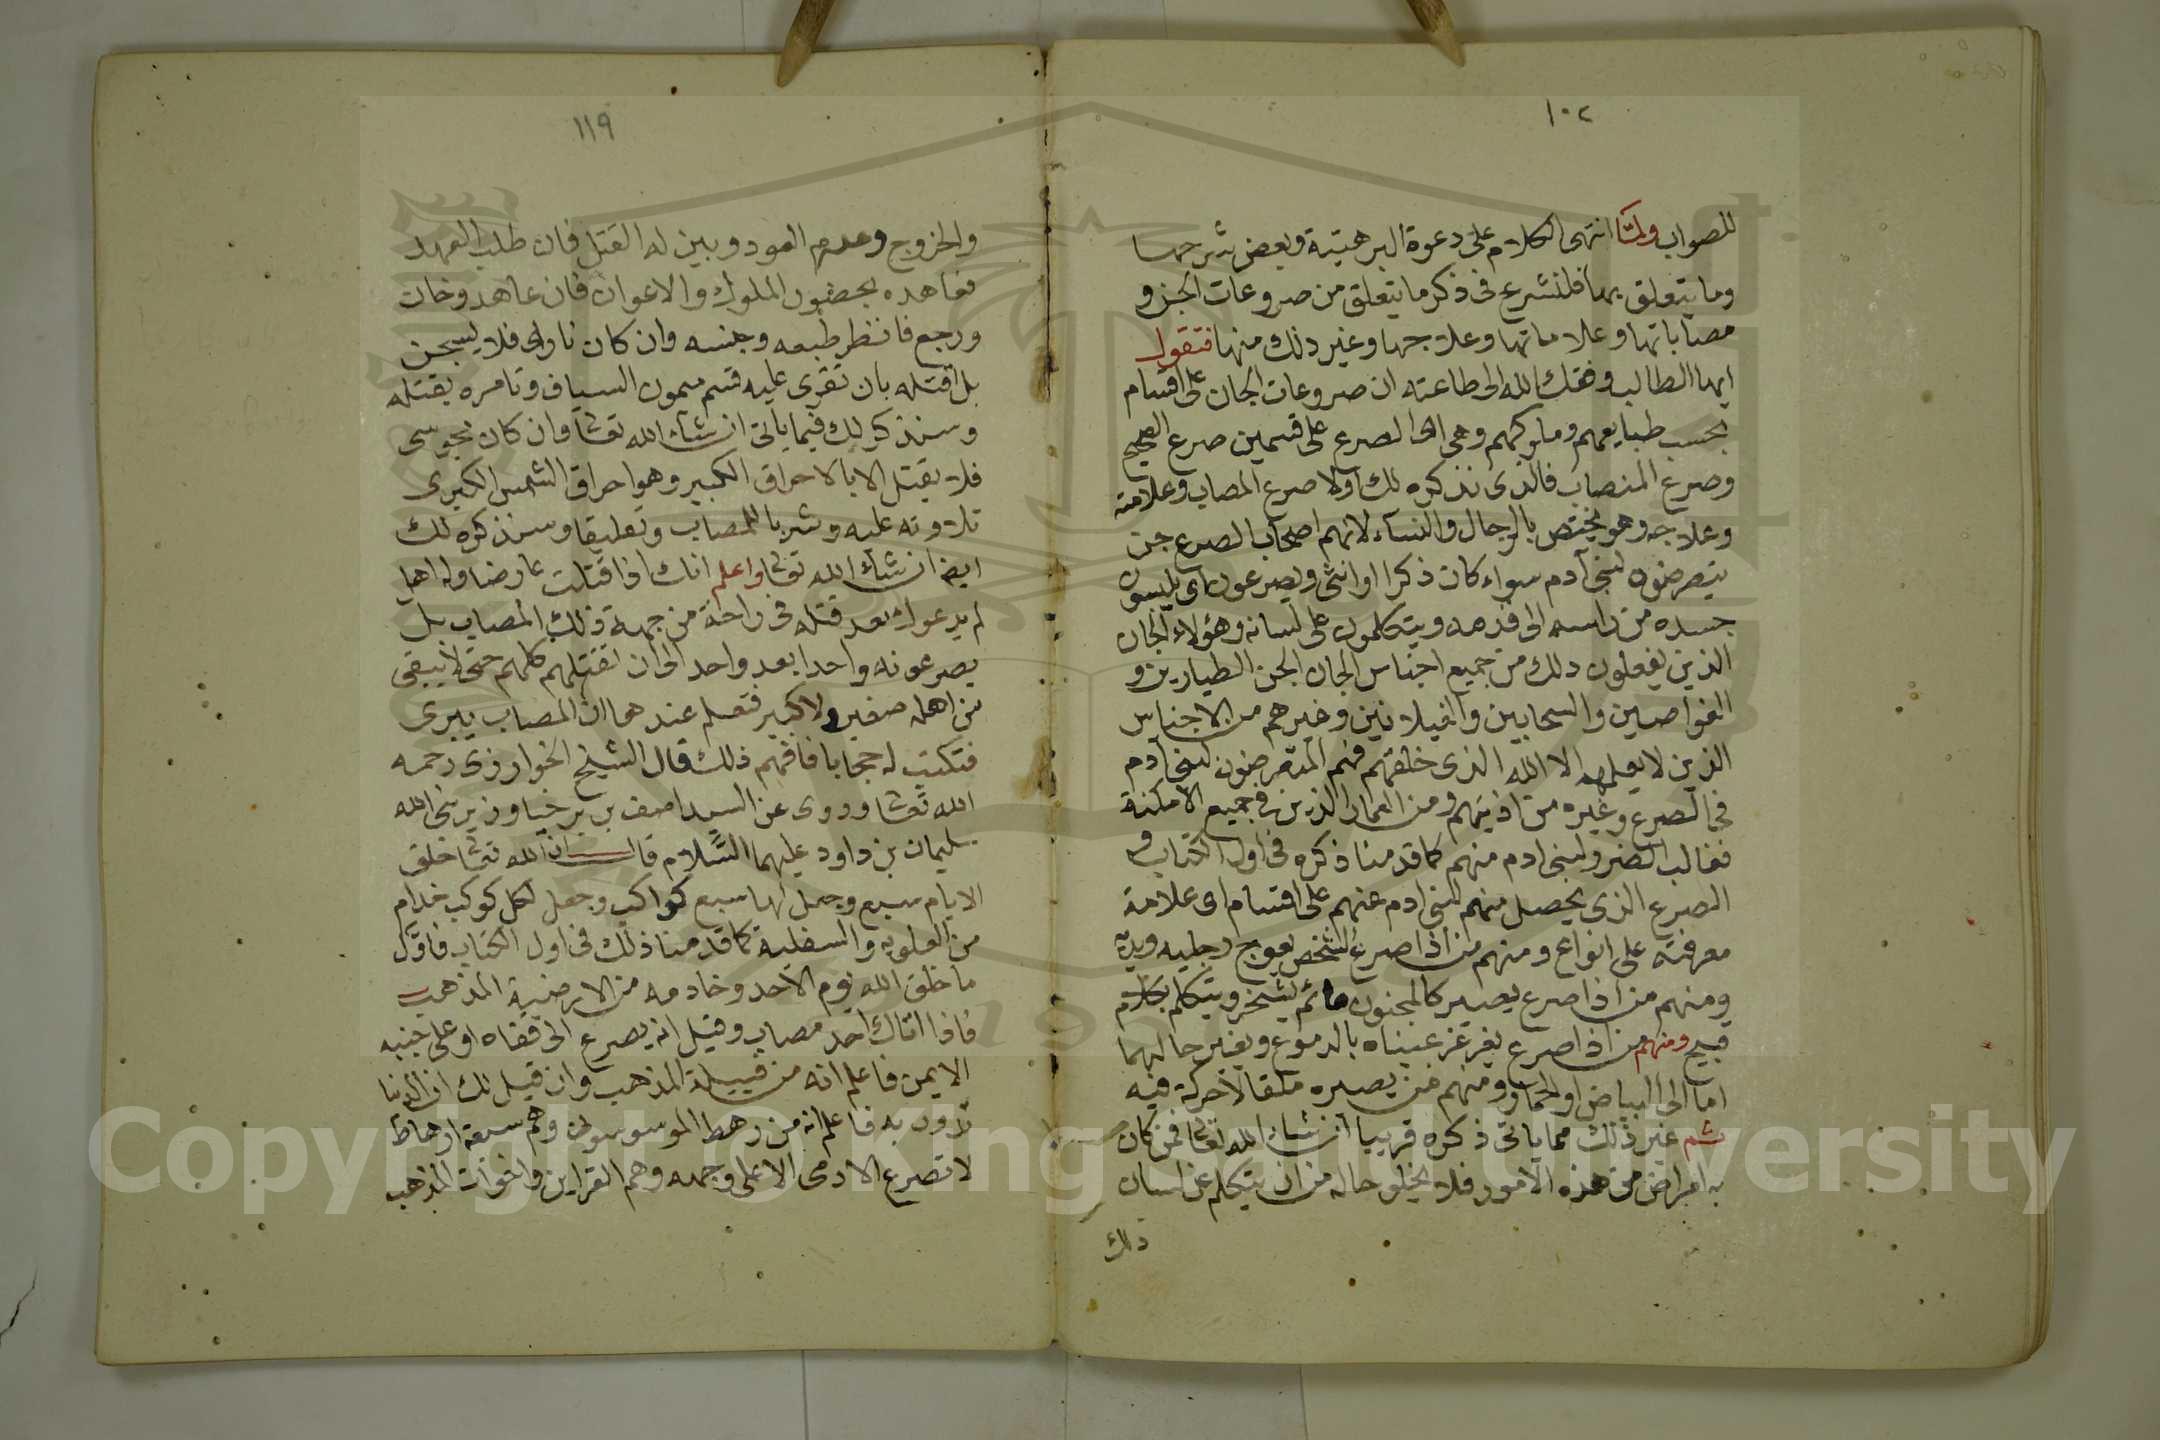 ١٠٢
للصواب ولمّا انتهى الكلام على دعوة البرهتية وبعض شرحها
وما يتعلق بها فلنشرع فى ذكر ما يتعلق من صروعات الجن و
مصاباتها وعلاماتها وعلاجها وغير ذلك منها فنقول
ايها الطالب وفقك الله الى طاعته ان صروعات الجان على اقسام
بحسب طبايعهم وملوكهم وهى اى الصرع على قسمين صرع الصحيح
وصرع المنصاب فالذى نذكره لك اولا صرع المصاب وعلامته
وعلاجه وهو يختص بالرجال والنسآء لانهم اصحاب الصرع جن
يتعرضون لبنى آدم سواء كان ذكرا او انثى ويصرعون اى يلبسون
جسده من راسه الى قدمه ويتكلمون على لسانه وهؤلاء الجان
الذين يفعلون ذلك من جميع اجناس الجان الجن الطيارين و
الغواصين والسحابين والفيلانين وغيرهم من الاجناس
الذين لا يعلمهم الا الله الذى خلقهم فهم المتعرضون لبنى آدم
فى الصرع وغيره من اذيتهم ومن العمار الذين فى جميع الامكنة
فغالب الضرر لبنى ادم منهم كما قدمنا ذكره فى اول الكتاب و
الصرع الذى يحصل منهم لبنى ادم منهم على اقسام اى علامة
معرفته على انواع ومنهم من اذا صرع الشخص يعوج رجليه ويديه
ومنهم من اذا صرع يصير كالمجنون هائم يشخر ويتكلم بكلام
قبيح ومنهم من اذا صرع يغرغر عيناه بالدموع ويغير حالهما
اما الى البياض او الحمار ومنهم من يصيره ملقا لا حركة فيه
ثم غير ذلك مما ياتى ذكره قريبا ان شاء الله تعالى فمن كان
به امراض من هذه الامور فلا يخلو حاله من ان يتكلم عن لسان
ذلك
١١٩
والخروج وعدم العود وبين له القتل فان طلب العهد
فعاهده بحضور الملوك والاعوان فان عاهد وخان
ورجع فانظر طبعه وجنسه وان كان نارى فلا يسجن
بل اقتله بان تقرى عليه قسم ميمون السياف وتامره بقتله
وسنذكر لك فيما ياتى ان شاء الله تعالى وان كان مجوسى
فلا يقتل الا بالاحراق الكبير وهو احراق الشمس الكبرى
تلاوته عليه وشربا للمصاب وتعليقا وسنذكره لك
ايضا ان شاء الله تعالى واعلم انك اذا قتلت عارضا وله اهل
لم يدعوك بعد قتله فى راحة من جهة ذلك المصاب بل
يصرعونه واحدا بعد واحد الى ان تقتلهم كلهم حتى لا يبقى
من اهله صغير ولا كبير فتعلم عندها ان المصاب يبرى
فتكتب له حجابا فافهم ذلك قال الشيخ الخوارزى رحمه
الله تعالى وروى عن السيد اصف بن برخيا وزير نبى الله
سليمان بن داود عليهما السّلام قال ان الله تعالى خلق
الايام سبع وجعل لها سبع كواكب وجعل لكل كوكب خدام
من العلويه والسفلية كما قدمنا ذلك فى اول الكتاب فاوّل
ما خلق الله يوم الاحد وخادمه من الارضية المذهب
فاذا اتاك احد مصاب وقيل انه يصرع الى قفاه او على جنبه
الايمن فاعلم انه من قبيلة المذهب وان قيل لك ان الدنيا
تدور به فاعلم انه من رهط الموسوسون وهم سبعة ارهاط
لا تصرع الادمى الا على وجهه وهم القراين واخوات المذهب
Copyright © King Saud University